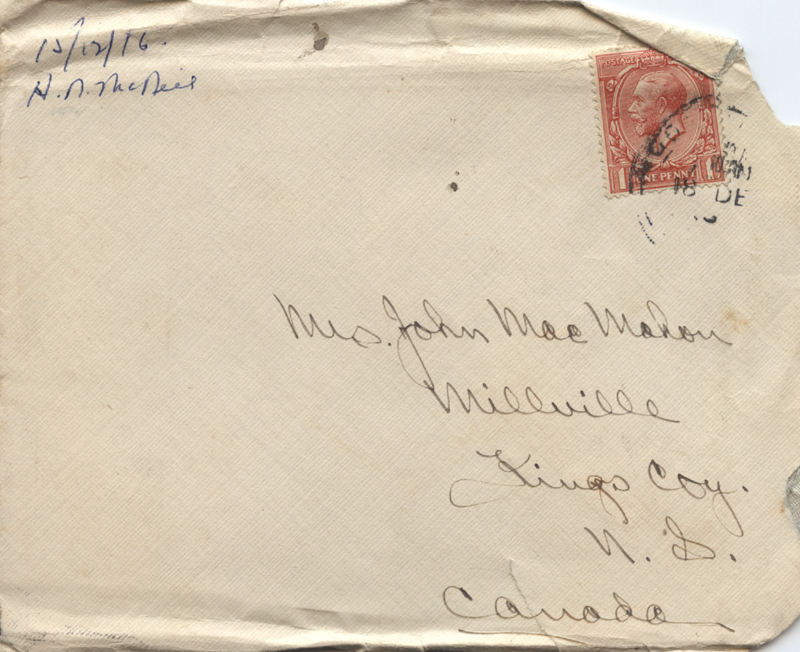 15/12/16.
H. A. McNeil
POSTAGE
1 ONE PENNY 1
18 DE
Mrs. John Mac Mahon
Millville
Kings Coy.
N. S.
Canada